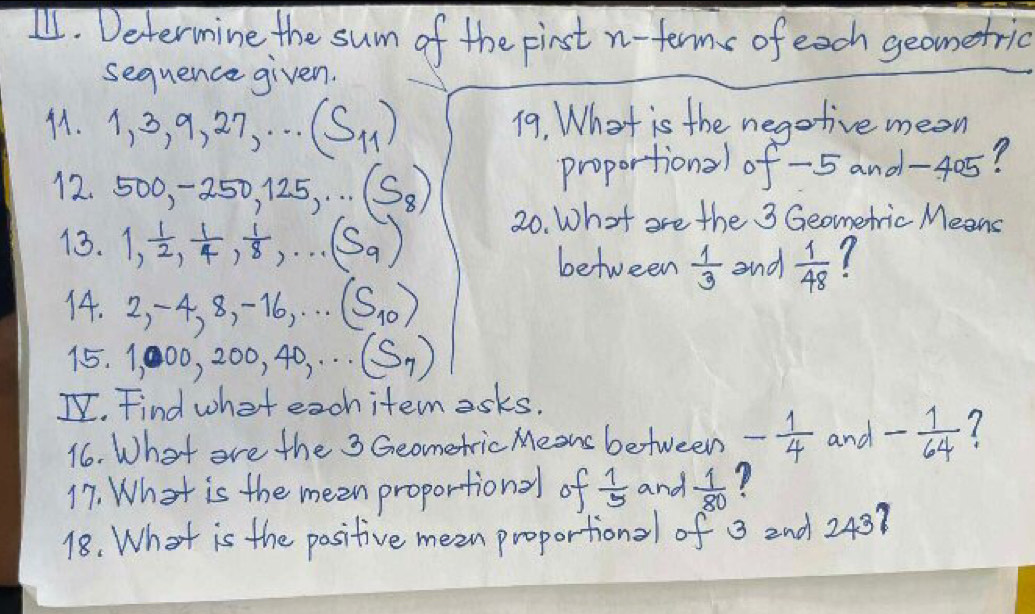 III. Determine the sum of the first n-terms of each geometric
sequence given.
11. 1, 3, 9, 27, ... (S₁₁)
12. 500, -250, 125, ... (S₈)
13. 1, 1/2, 1/4, 1/8, ... (S₉)
14. 2, -4, 8, -16, ... (S₁₀)
15. 1,000, 200, 40, ... (S₇)
19. What is the negative mean
proportional of -5 and -405?
20. What are the 3 Geometric Means
between 1/3 and 1/48?
IV. Find what each item asks.
16. What are the 3 Geometric Means between - 1/4 and - 1/64?
17. What is the mean proportional of 1/5 and 1/80?
18. What is the positive mean proportional of 3 and 243?